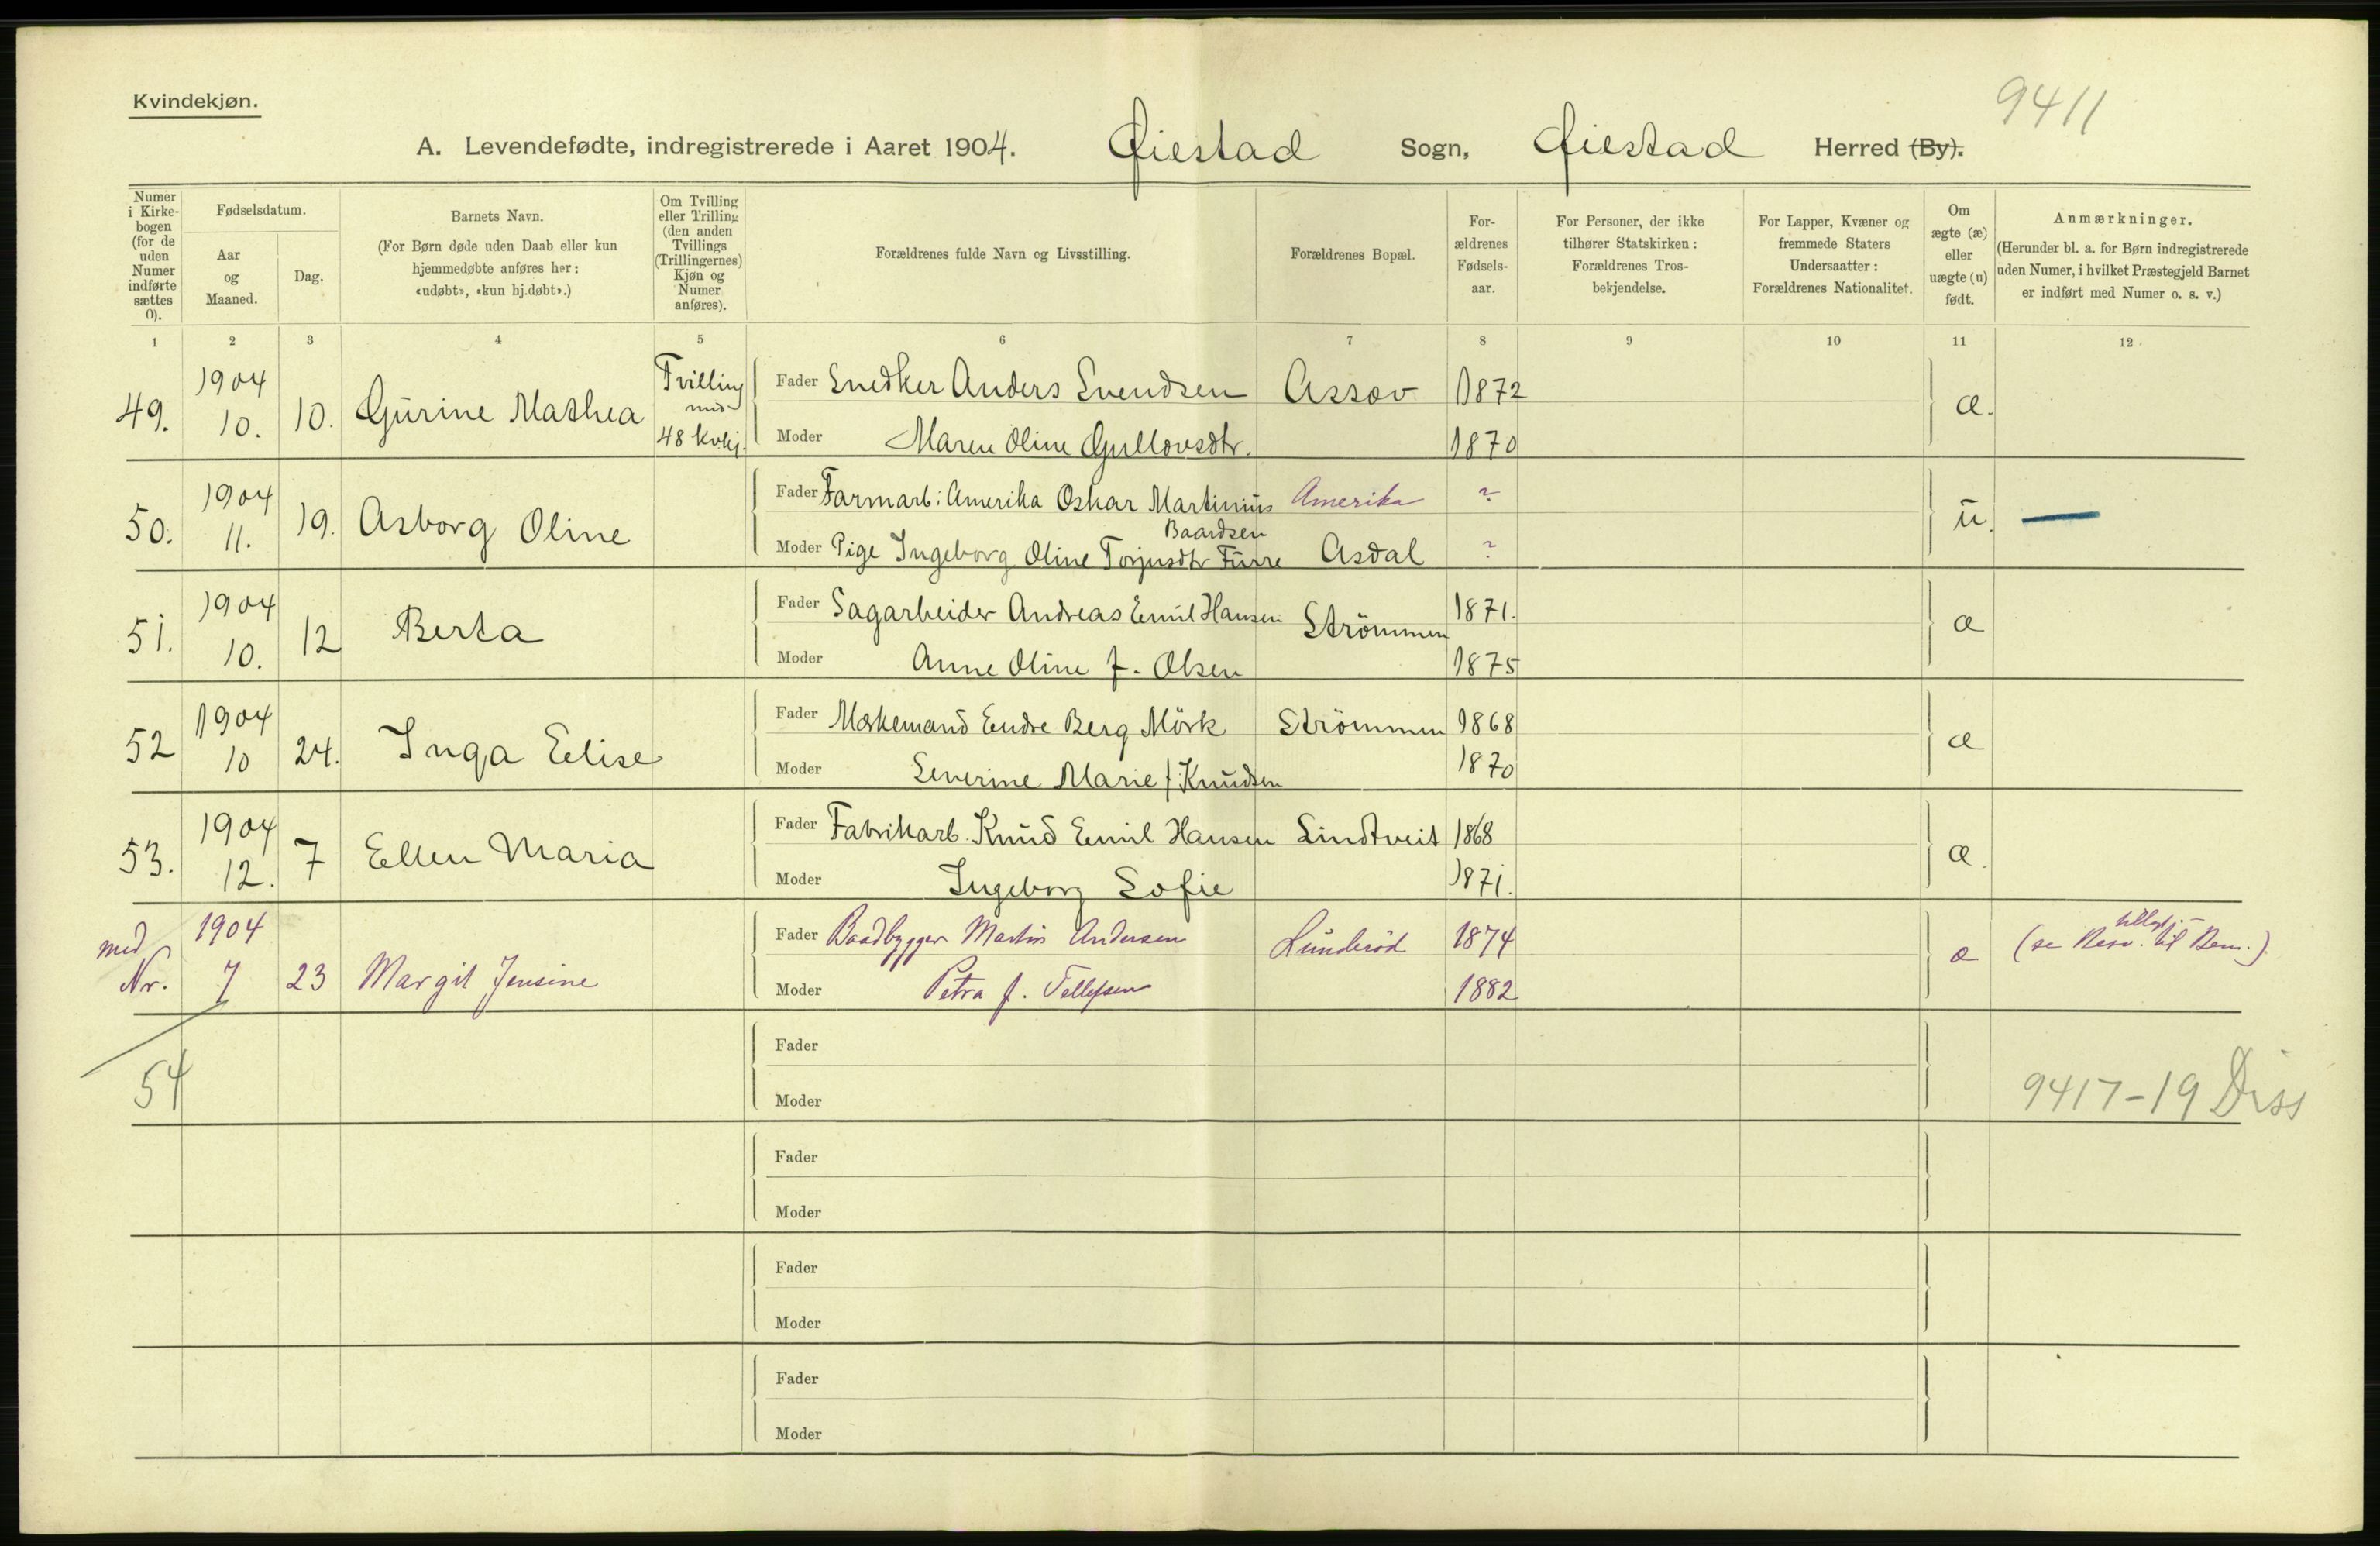 9411
Kvindekjøn.
A. Levendefødte, indregistrerede i Aaret 1904. Øiestad Sogn, Øiestad Herred (By).
Numer i Kirke-bogen (for de uden Numer indførte sættes 0).
Fødselsdatum.
Aar og Maaned.
Dag.
Barnets Navn.
(For Børn døde uden Daab eller kun hjemmedøbte anføres her: «udøbt», «kun hj.døbt».)
Om Tvilling eller Trilling (den anden Tvillings (Trillingernes) Kjøn og Numer anføres).
Forældrenes fulde Navn og Livsstilling.
Forældrenes Bopæl.
For-ældrenes Fødsels-aar.
For Personer, der ikke tilhører Statskirken: Forældrenes Tros-bekjendelse.
For Lapper, Kvæner og fremmede Staters Undersaatter: Forældrenes Nationalitet.
Om ægte (æ) eller uægte (u) født.
Anmærkninger.
(Herunder bl. a. for Børn indregistrerede uden Numer, i hvilket Præstegjeld Barnet er indført med Numer o. s. v.)
1 2 3 4 5 6 7 8 9 10 11 12
49. 1904 10. 10. Gurine Mathea Tvilling med 48 Kvkj. Fader Snedker Anders Svendsen Assev 1872 æ.
Moder Maren Oline Gullovsdtr. 1870
50. 1904 11. 19. Asborg Oline Fader Farmarb. i Amerika Oskar Martinius Baardsen Amerika ? u.
Moder Pige Ingeborg Oline Torjusdtr Furre Asdal ?
51. 1904 10. 12 Berta Fader Sagarbeider Andreas Emil Hansen Strömmen 1871. æ
Moder Anne Oline f. Olsen 1875
52 1904 10 24. Inga Elise Fader Endre Berg Mörk Strömmen 1868 æ
Moder Severine Marie f. Knudsen 1870
53. 1904 12. 7 Ellen Maria Fader Fabrikarb. Knud Emil Hansen Lindtveit 1868 æ.
Moder Ingeborg Sofie 1871.
med Nr. 1904 7 23 Margit Jensine Fader Baadbygger Martin Andersen Lunderød 1874 æ (se til Bem.)
Moder Petra f. Tellefsen 1882
Fader
54 9417-19 Diss
Moder
Fader
Moder
Fader
Moder
Fader
Moder